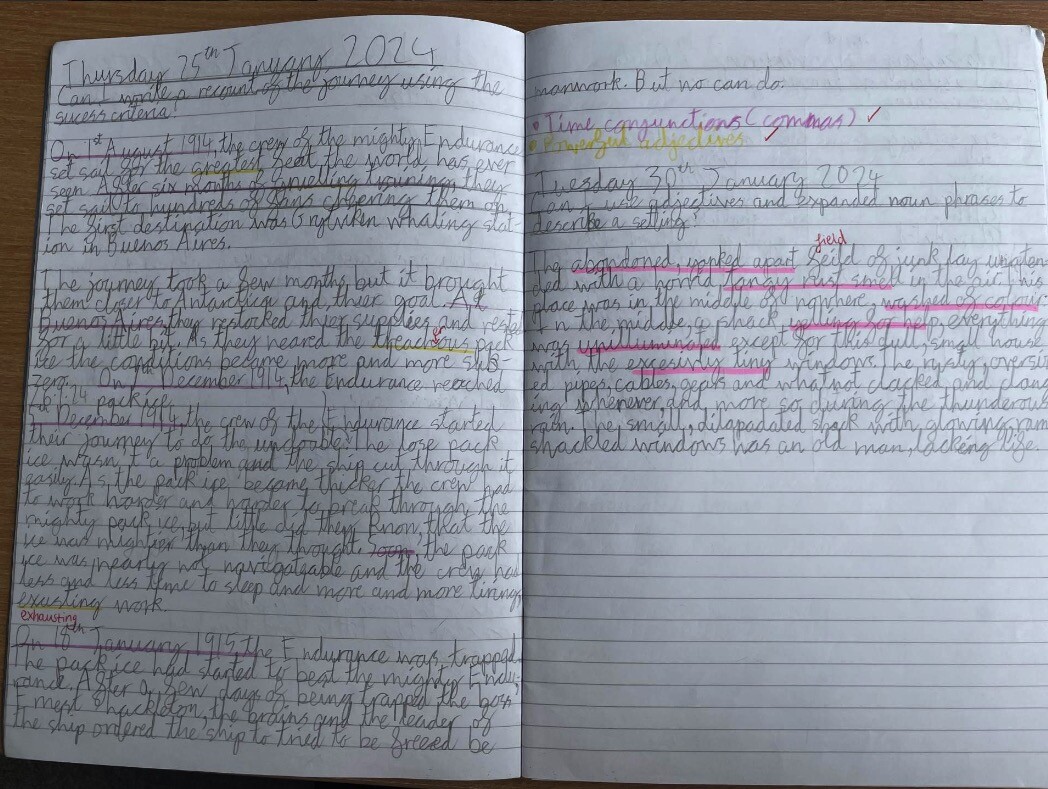 Thursday 25th January 2024
Can I write a recount of the journey using the
sucess criteria?
On 1st August 1914, the crew of the mighty Endurance
set sail for the greatest feat the world has ever
seen. After six months of training they
set sail to hundreds of fans cheering them on.
The first destination was Grytviken whaling stat-
ion in Buenos Aires.
The journey took a few months but it brought
them closer to Antarctica and thier goal. At
Buenos Aires, they restocked thier supplies and rested
for a little bit. As they neared the treachous pack
ice the conditions became more and more sub-
zero. On 7th December 1914, the Endurance reached
pack ice.
December 1914, the crew of the Endurance started
their journey to do the undoable. The lose pack
ice wasn't a problem and the ship cut through it
easily. As the pack ice became thicker the crew had
to work harder and harder to break through the
mighty pack ice, but little did they know, that the
ice was mightier than they thought. Soon, the pack
ice was nearly not navigateable and the crew had
less and less time to sleep and more and more tiring,
exausting work.
exhausting
On 18th January, 1915, the Endurance was trapped.
The pack ice had started to beat the mighty Endu-
rance. After a few days of being trapped the boss,
Ernest Shackleton, the brains and the leader of
the ship ordered the ship to tried to be freeed be
manwork. But no can do.
• Time conjunctions (commas) ✓
• Powerful adjectives ✓
Tuesday 30th January 2024
Can I use adjectives and expanded noun phrases to
describe a setting?
field
The abandoned, yanked apart feild of junk lay unatten-
ded with a horrid, tangy rust smell in the air. This
place was in the middle of nowhere, washed of colour.
In the middle, a shack yelling for help, everything
was unilluminated except for this dull, small house
with the excessivly tiny windows. The rusty, oversiz-
ed pipes, cables, gears and whatnot clacked and clang-
ing whenever, and more so during the thunderous
rain. The small, dilapadated shack with glowing, ram
shackled windows has an old man, lacking life.